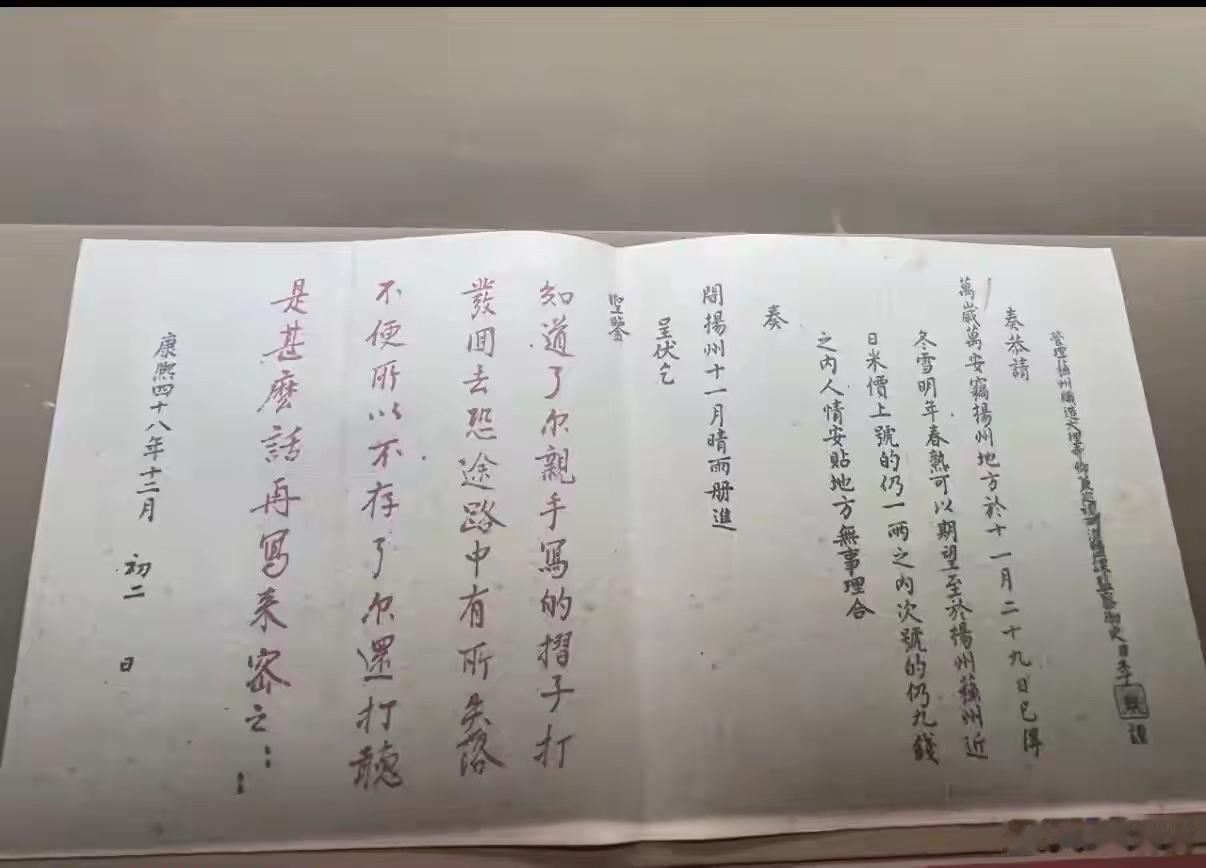 管理蘇州織造大理寺卿兼巡視兩淮鹽課監察御史臣李煦謹
奏恭請
萬歲萬安竊揚州地方於十一月二十九日已得
冬雪明年春熟可以期望至於揚州蘇州近
日米價上號的仍一兩之內次號的仍九錢
之內人情安貼地方無事理合
奏
聞揚州十一月晴雨册進
呈伏乞
聖鑒
知道了尔親手寫的摺子打
發回去恐途路中有所失落
不便所以不存了尔還打聽
是甚麽話再寫來密之：
康熙四十八年十二月 初二 日